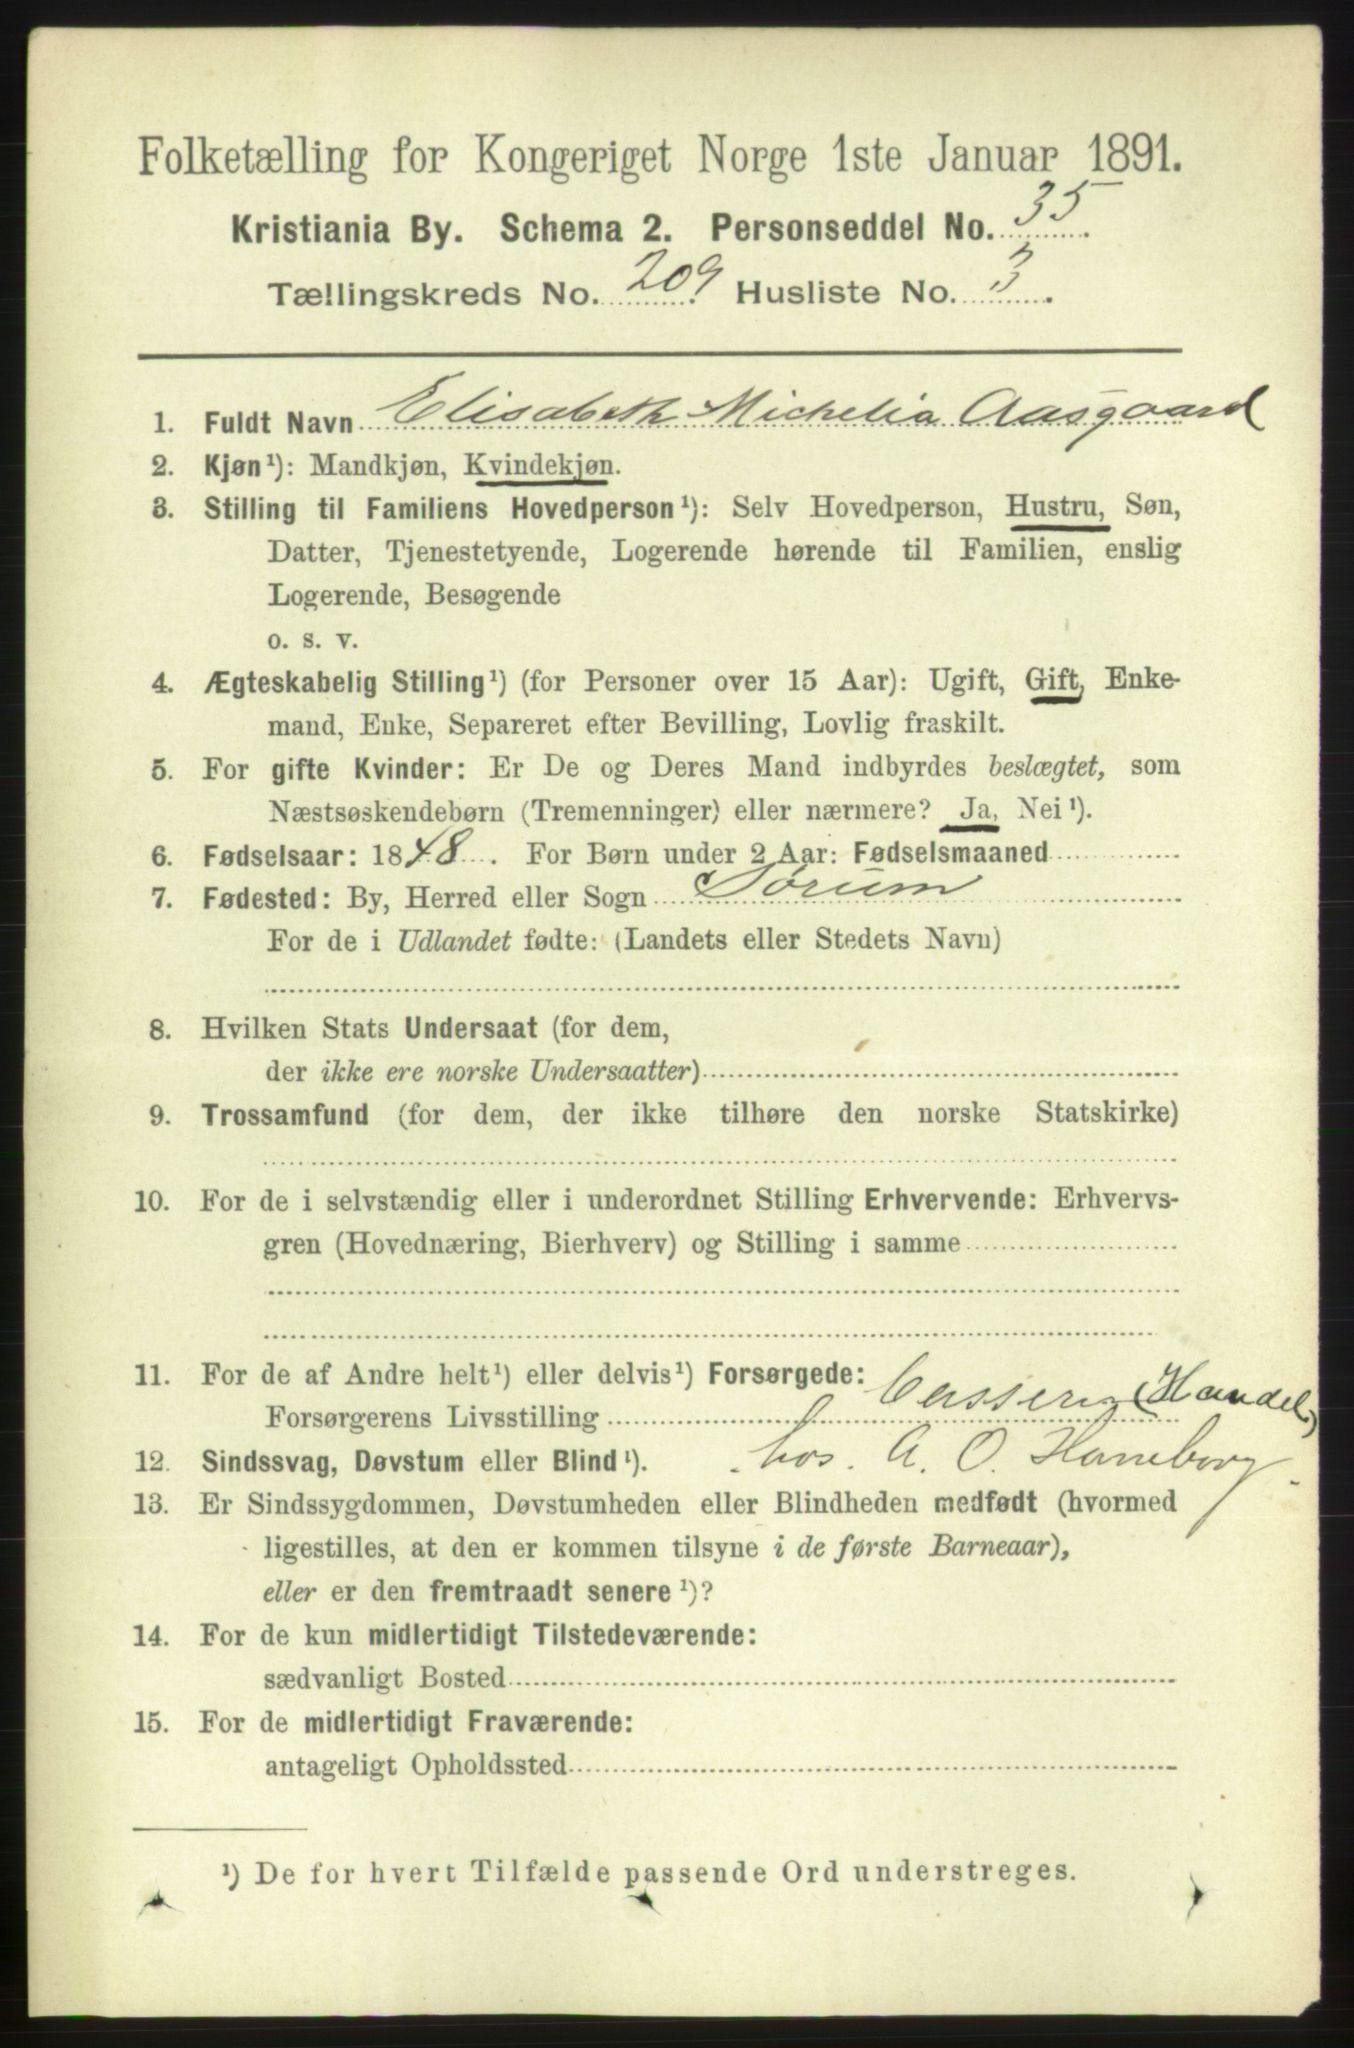 Folketælling for Kongeriget Norge 1ste Januar 1891.
Kristiania By. Schema 2. Personseddel No. 35.
Tællingskreds No. 209. Husliste No. 3.
1. Fuldt Navn Elisabeth Michelia Aasgaard
2. Kjøn¹): Mandkjøn, Kvindekjøn.
3. Stilling til Familiens Hovedperson¹): Selv Hovedperson, Hustru, Søn,
Datter, Tjenestetyende, Logerende hørende til Familien, enslig
Logerende, Besøgende
o. s. v.
4. Ægteskabelig Stilling¹) (for Personer over 15 Aar): Ugift, Gift, Enke-
mand, Enke, Separeret efter Bevilling, Lovlig fraskilt.
5. For gifte Kvinder: Er De og Deres Mand indbyrdes beslægtet, som
Næstsøskendebørn (Tremenninger) eller nærmere? Ja, Nei¹).
6. Fødselsaar: 1848. For Børn under 2 Aar: Fødselsmaaned
7. Fødested: By, Herred eller Sogn Sørum
For de i Udlandet fødte: (Landets eller Stedets Navn)
8. Hvilken Stats Undersaat (for dem,
der ikke ere norske Undersaatter)
9. Trossamfund (for dem, der ikke tilhøre den norske Statskirke)
10. For de i selvstændig eller i underordnet Stilling Erhvervende: Erhvervs-
gren (Hovednæring, Bierhverv) og Stilling i samme
11. For de af Andre helt¹) eller delvis¹) Forsørgede:
Forsørgerens Livsstilling (Handel)
12. Sindssvag, Døvstum eller Blind¹). hos. A. O. Haneborg.
13. Er Sindssygdommen, Døvstumheden eller Blindheden medfødt (hvormed
ligestilles, at den er kommen tilsyne i de første Barneaar),
eller er den fremtraadt senere¹)?
14. For de kun midlertidigt Tilstedeværende:
sædvanligt Bosted
15. For de midlertidigt Fraværende:
antageligt Opholdssted
¹) De for hvert Tilfælde passende Ord understreges.